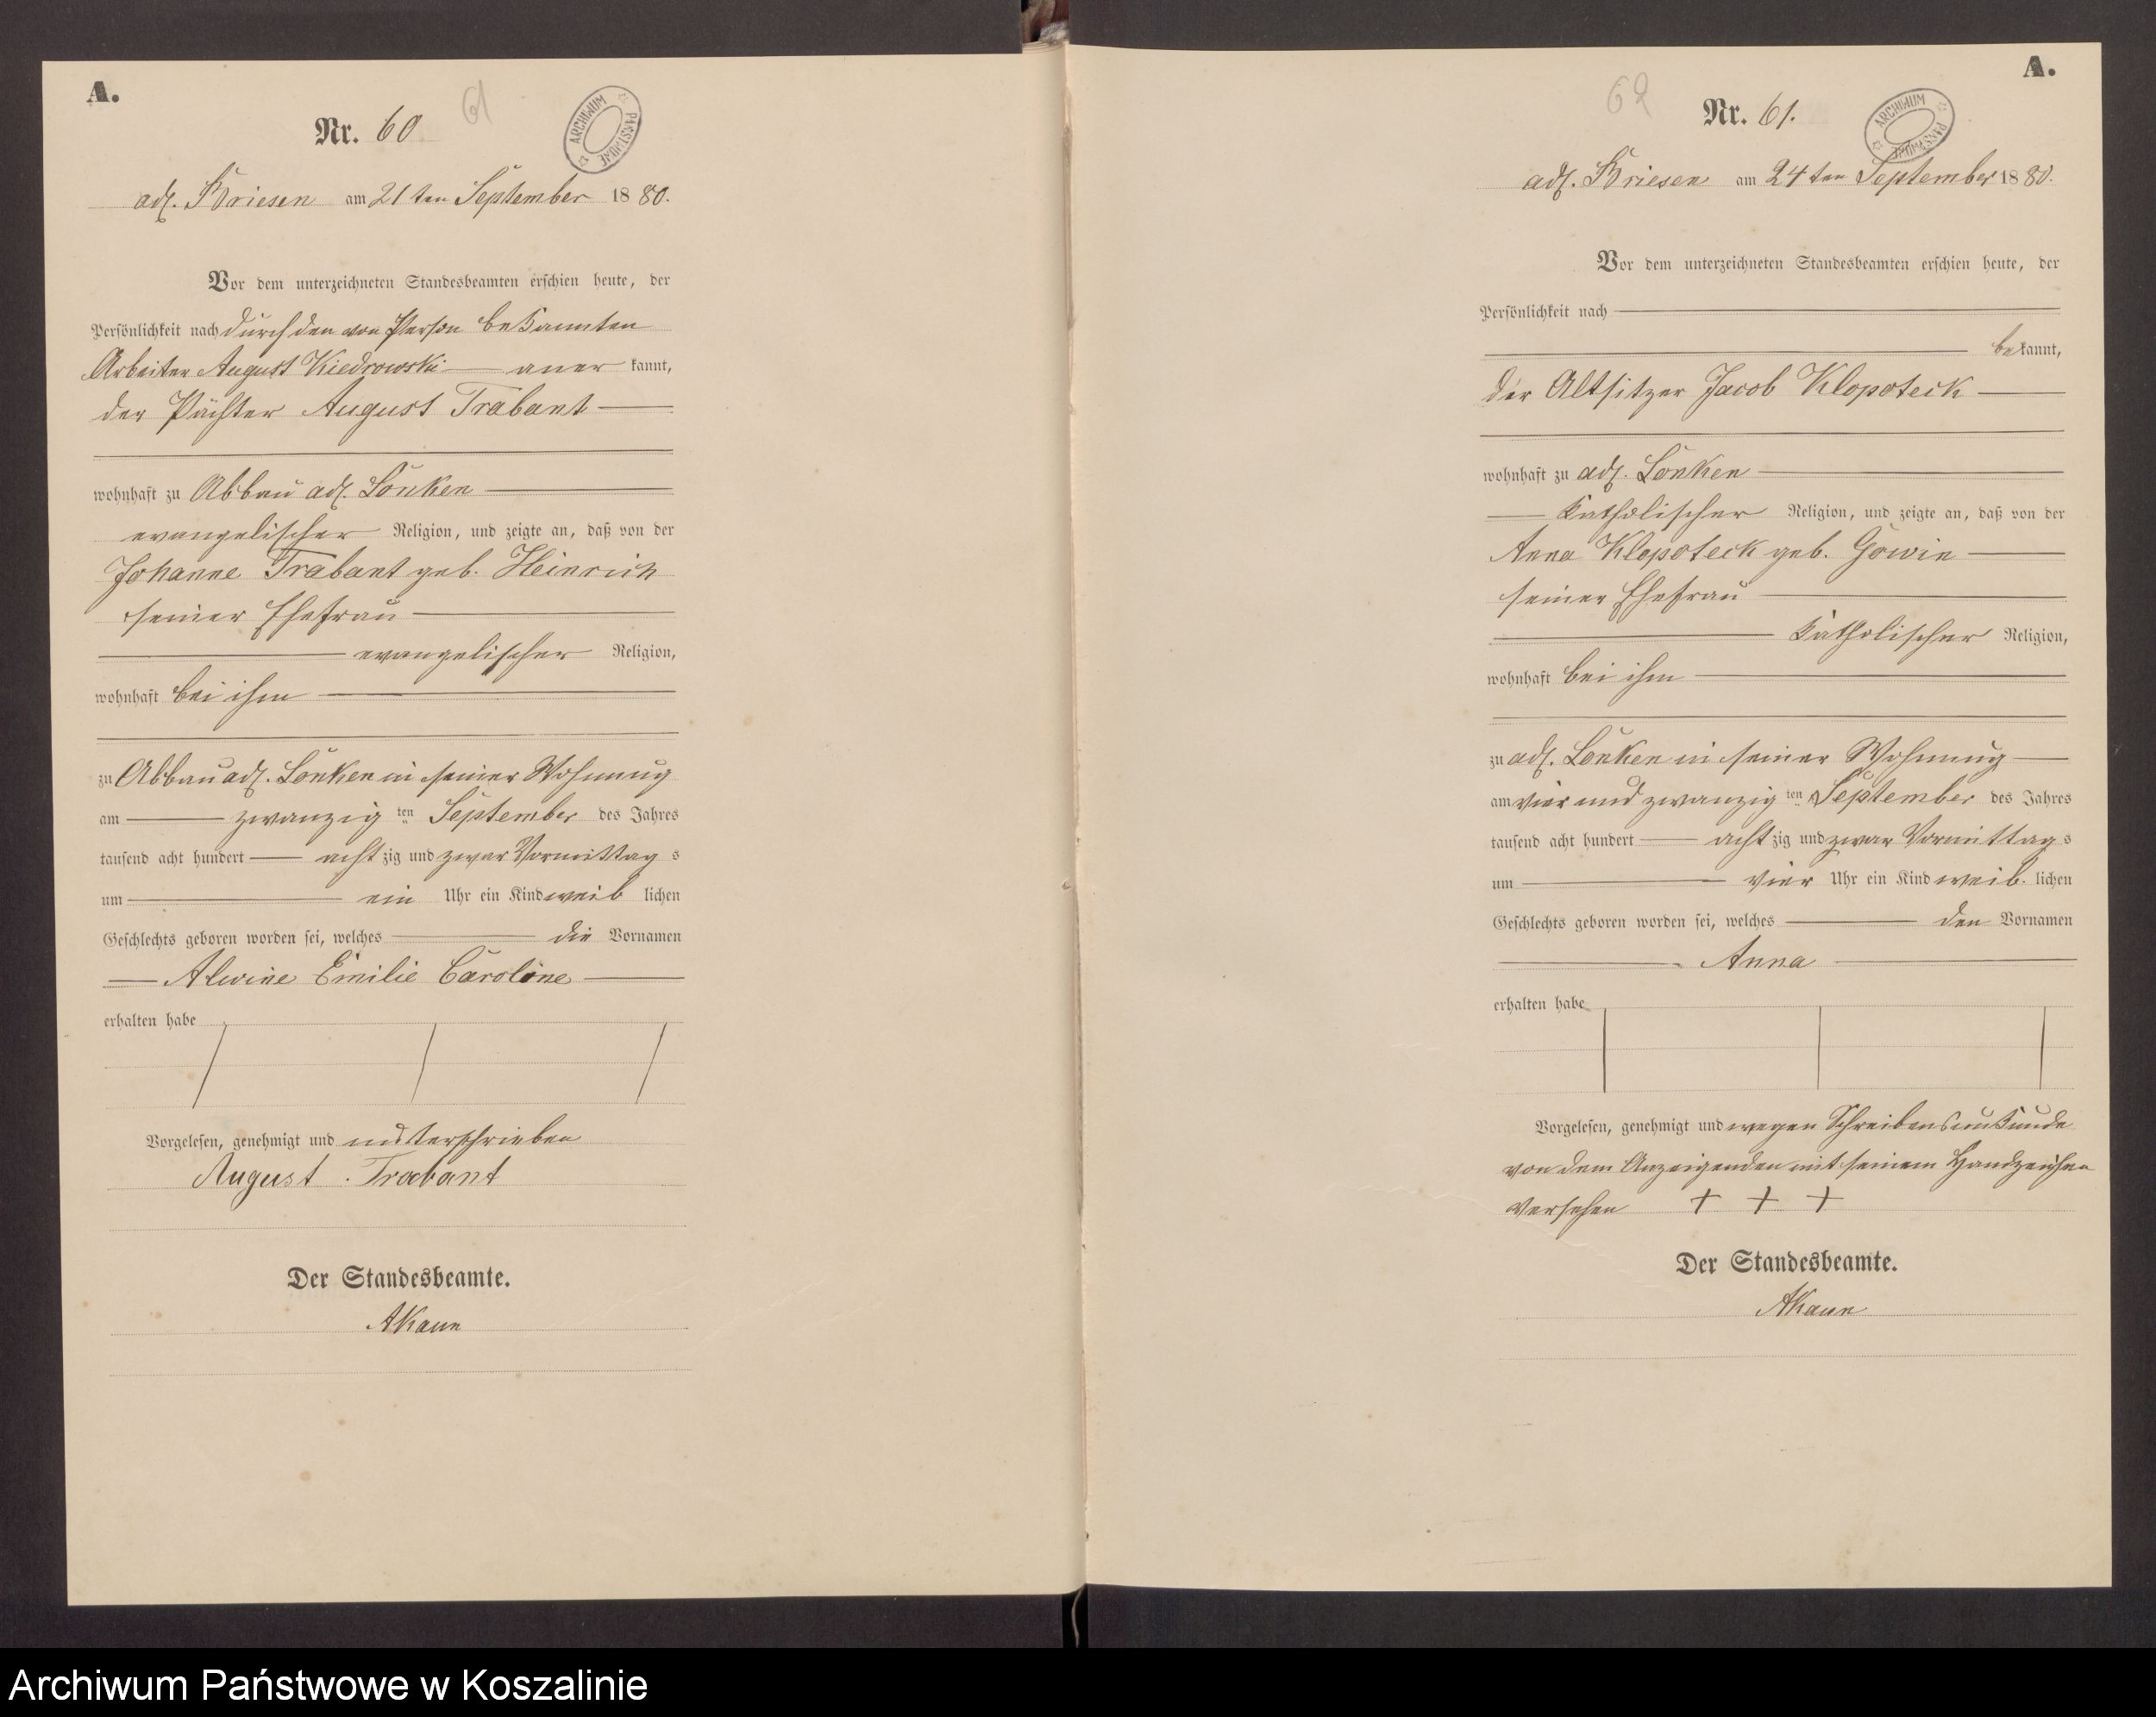 A.
Nr. 60
61
ARCHIWUM PAŃSTWOWE
adl. Briesen am 21ten September 1880.
Vor dem unterzeichneten Standesbeamten erschien heute, der
Persönlichkeit nach durch den von Person bekannten
Arbeiter August Kiedrowski aner kannt,
der Pächter August Trabant
wohnhaft zu Abbau adl. Lonken
evangelischer Religion, und zeigte an, daß von der
Johanne Trabant geb. Heinrich
seiner Ehefrau
evangelischer Religion,
wohnhaft bei ihm
zu Abbau adl. Lonken in seiner Wohnung
am zwanzig ten September des Jahres
tausend acht hundert acht zig und zwar Vormittag s
um ein Uhr ein Kind weib lichen
Geschlechts geboren worden sei, welches die Vornamen
Alwine Emilie Caroline
erhalten habe
Vorgelesen, genehmigt und unterschrieben
August Trabant
Der Standesbeamte.
AKaun
A.
62
Nr. 61.
ARCHIWUM PAŃSTWOWE
adl. Briesen am 24ten September 1880.
Vor dem unterzeichneten Standesbeamten erschien heute, der
Persönlichkeit nach
be kannt,
der Altsitzer Jacob Klopoteck
wohnhaft zu adl. Lonken
katholischer Religion, und zeigte an, daß von der
Anna Klopoteck geb. Gowin
seiner Ehefrau
katholischer Religion,
wohnhaft bei ihm
zu adl. Lonken in seiner Wohnung
am vier und zwanzig ten September des Jahres
tausend acht hundert acht zig und zwar Vormittag s
um vier Uhr ein Kind weib. lichen
Geschlechts geboren worden sei, welches den Vornamen
Anna
erhalten habe
Vorgelesen, genehmigt und wegen Schreibensunkunde
von dem Anzeigenden mit seinem Handzeichen
versehen + + +
Der Standesbeamte.
AKaun
Archiwum Państwowe w Koszalinie